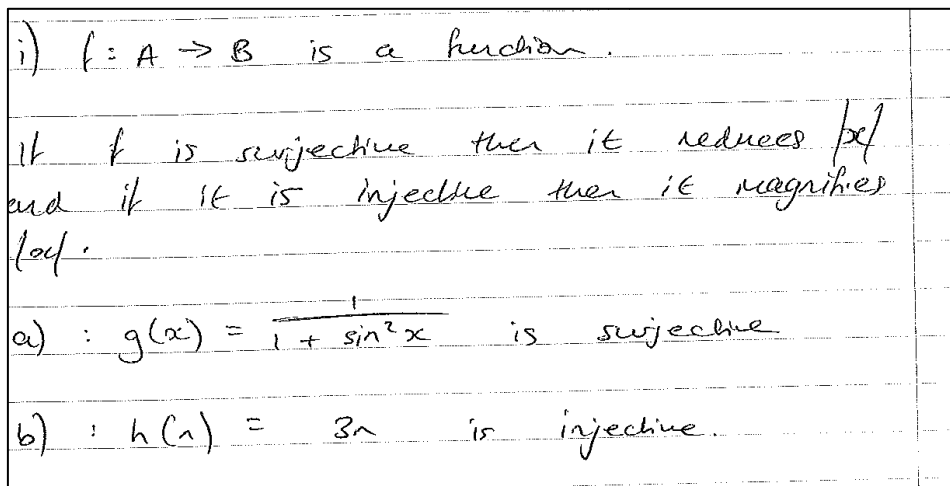 i) f: A → B is a function.
If f is surjective then it reduces |x|
and if it is injective then it magnifies
|x|.
a) : g(x) = 1/(1 + sin²x) is surjective
b) : h(n) = 3n is injective.